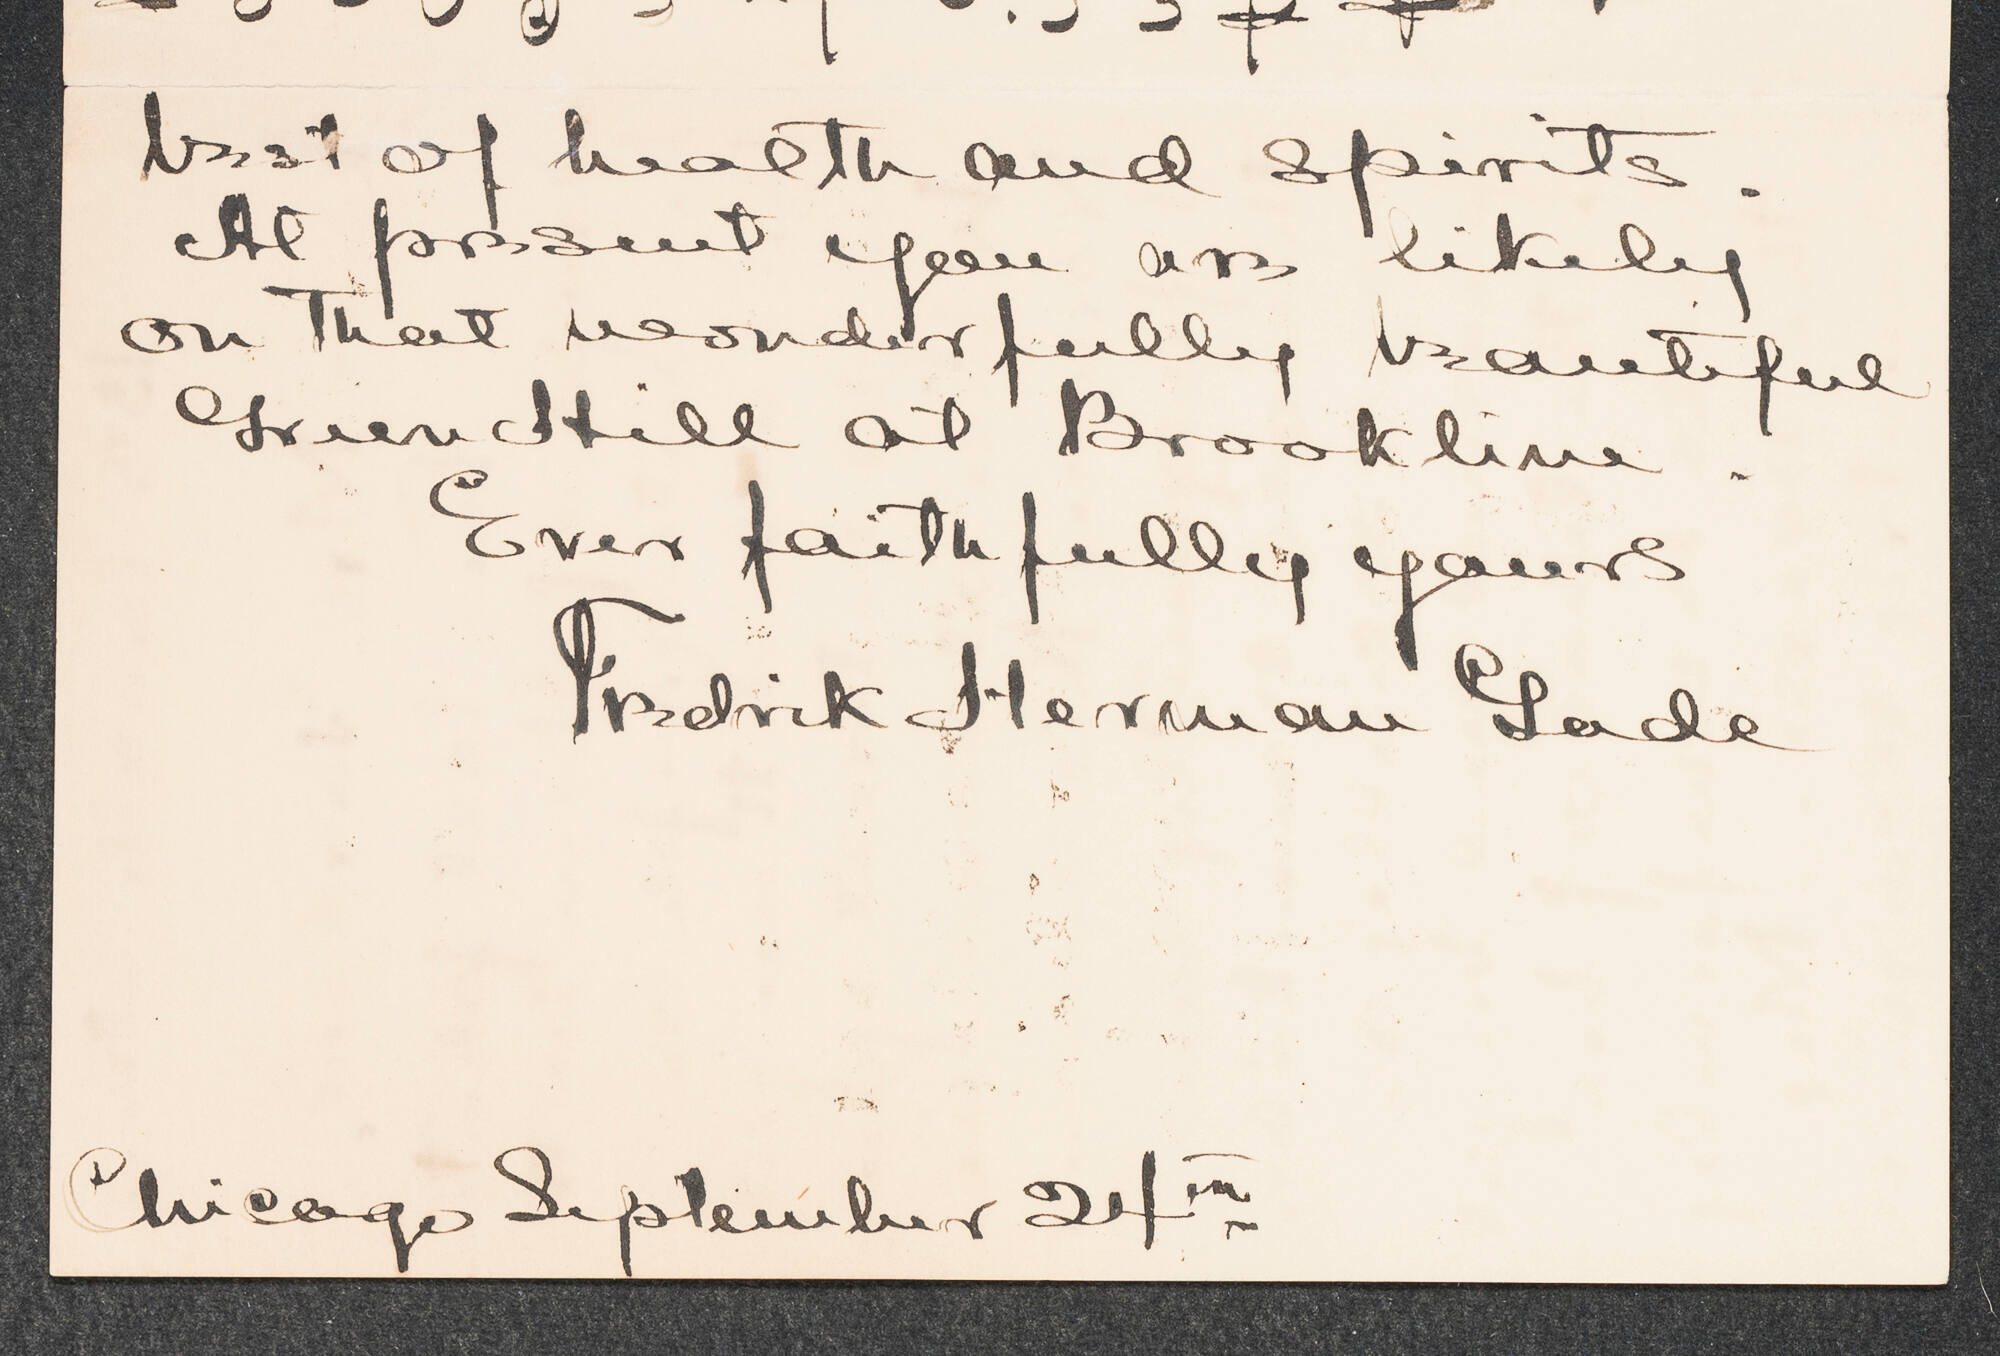 best of health and spirits.
At present you are likely
on that wonderfully beautiful
Green Hill at Brookline.
Ever faithfully yours
Fredrik Herman Gade
Chicago September 24th